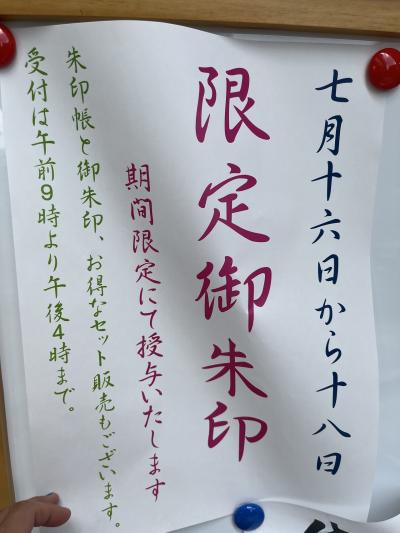 七月十六日から十八日
限定御朱印
期間限定にて授与いたします
朱印帳と御朱印、お得なセット販売もございます。
受付は午前9時より午後4時まで。